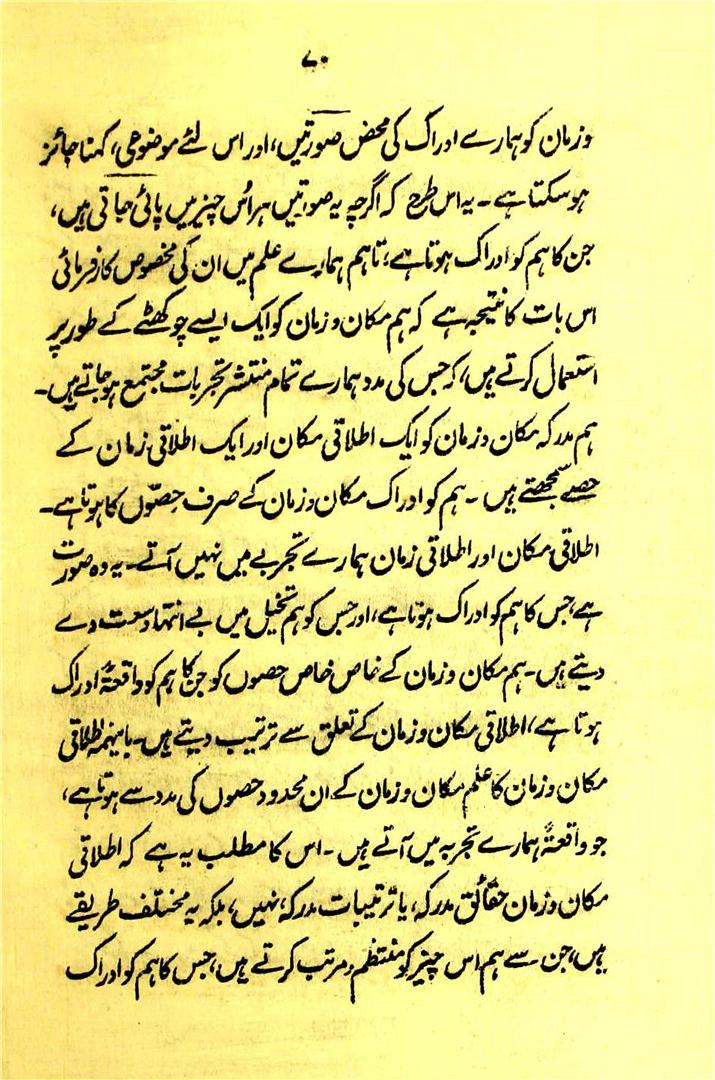 ۷۰
وزمان کو ہمارے ادراک کی محض صورتیں، اور اس لئے موضوعی، کہنا جائز
ہوسکتا ہے ۔ یہ اس طرح کہ اگرچہ یہ صورتیں ہر اُس چیز میں پائی جاتی ہیں،
جن کا ہم کو ادراک ہوتا ہے، تاہم ہمارے علم میں ان کی مخصوص کارفرمائی
اس بات کا نتیجہ ہے کہ ہم مکان و زمان کو ایک ایسے چوکھٹے کے طور پر
استعمال کرتے ہیں، کہ جس کی مدد ہمارے تمام منتشر تجربات مجتمع ہوجاتے ہیں۔
ہم مدرکہ مکان و زمان کو ایک اطلاقی مکان اور ایک اطلاقی زمان کے
حصے سمجھتے ہیں ۔ ہم کو ادراک مکان و زمان کے صرف حصّوں کا ہوتا ہے۔
اطلاقی مکان اور اطلاقی زمان ہمارے تجربے میں نہیں آتے ۔ یہ وہ صورت
ہے، جس کا ہم کو ادراک ہوتا ہے، اور جس کو ہم تخیل میں بے انتہا وسعت دے
دیتے ہیں۔ ہم مکان و زمان کے خاص خاص حصوں کو جن کا ہم کو واقعۃً ادراک
ہوتا ہے، اطلاقی مکان و زمان کے تعلق سے ترتیب دیتے ہیں۔ باینہمہ اطلاقی
مکان و زمان کا علم مکان و زمان کے ان محدود حصوں کی مدد سے ہوتا ہے،
جو واقعۃً ہمارے تجربہ میں آتے ہیں ۔ اس کا مطلب یہ ہے کہ اطلاقی
مکان و زمان حقائق مدرکہ، یا ترتیبات مدرکہ، نہیں، بلکہ یہ مختلف طریقے
ہیں، جن سے ہم اس چیز کو منتظم و مرتب کرتے ہیں، جس کا ہم کو ادراک